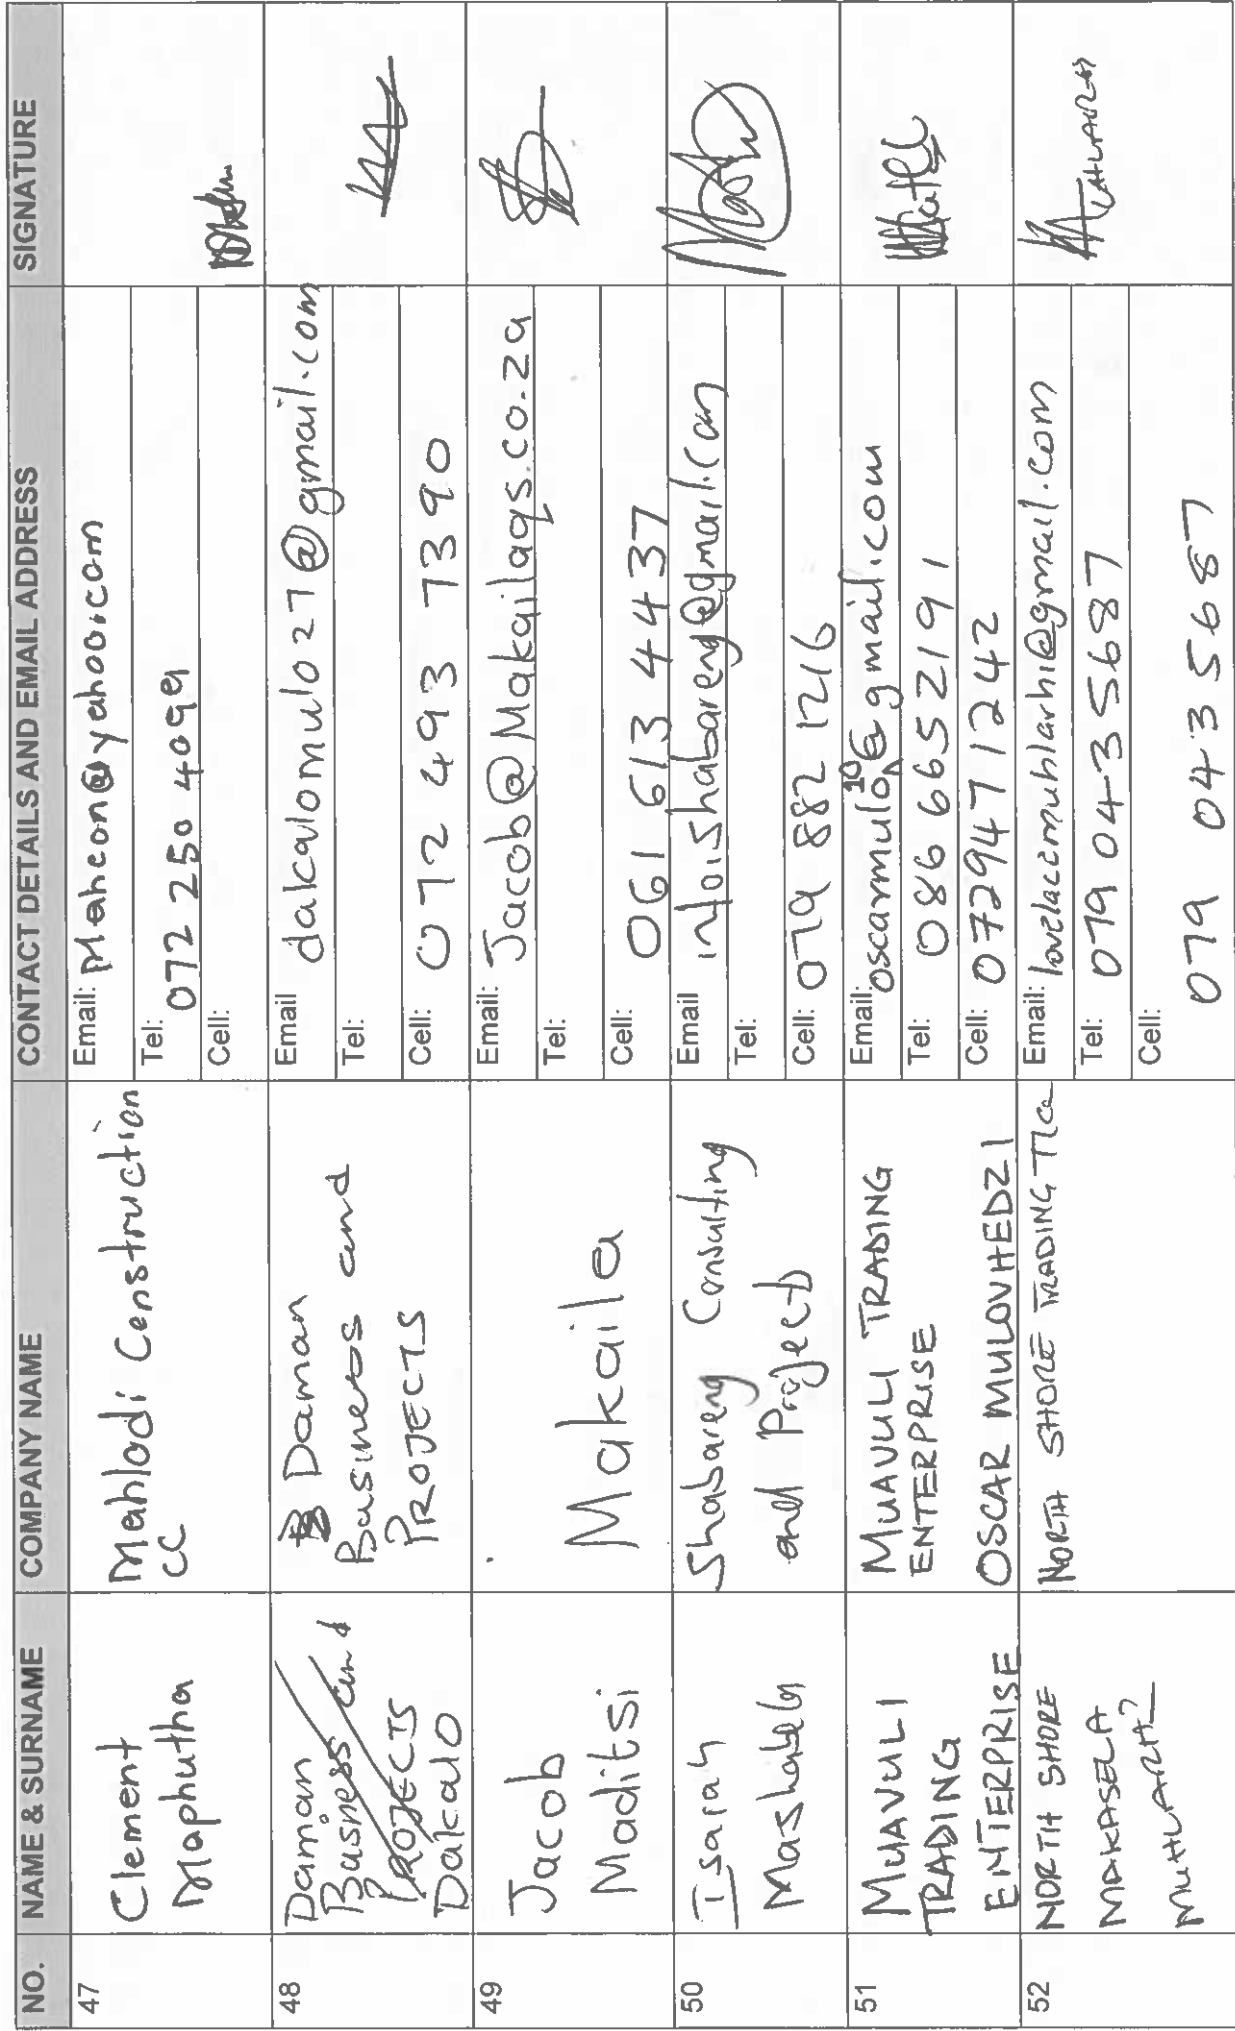 NO. NAME & SURNAME COMPANY NAME CONTACT DETAILS AND EMAIL ADDRESS SIGNATURE
47
Clement
Maphutha
Mahlodi Construction
CC
Email: Mahcon@yahoo.com
Tel: 072 250 4099
Cell:
48
Daman
Busness and
PROJECTS
Dakalo
B Daman
Business and
PROJECTS
Email dakalomulo27@gmail.com
Tel:
Cell: 072 493 7390
49
Jacob
Maditsi
Makaila
Email: Jacob@Makailaqs.co.za
Tel:
Cell: 061 613 4437
50
Isarah
Mashabela
Shabareng Consulting
and Project
Email info.shabareng@gmail.com
Tel:
Cell: 079 882 1216
51
MUAVULI
TRADING
ENTERPRISE
MUAVULI TRADING
ENTERPRISE
OSCAR MULOVHEDZI
Email: oscarmulo10@gmail.com
Tel: 086 6652191
Cell: 0729471242
52
NORTH SHORE
MAKASELA
NORTH SHORE TRADING
Email: lovelacemuhlarhi@gmail.com
Tel: 079 043 5687
Cell:
079 043 5687